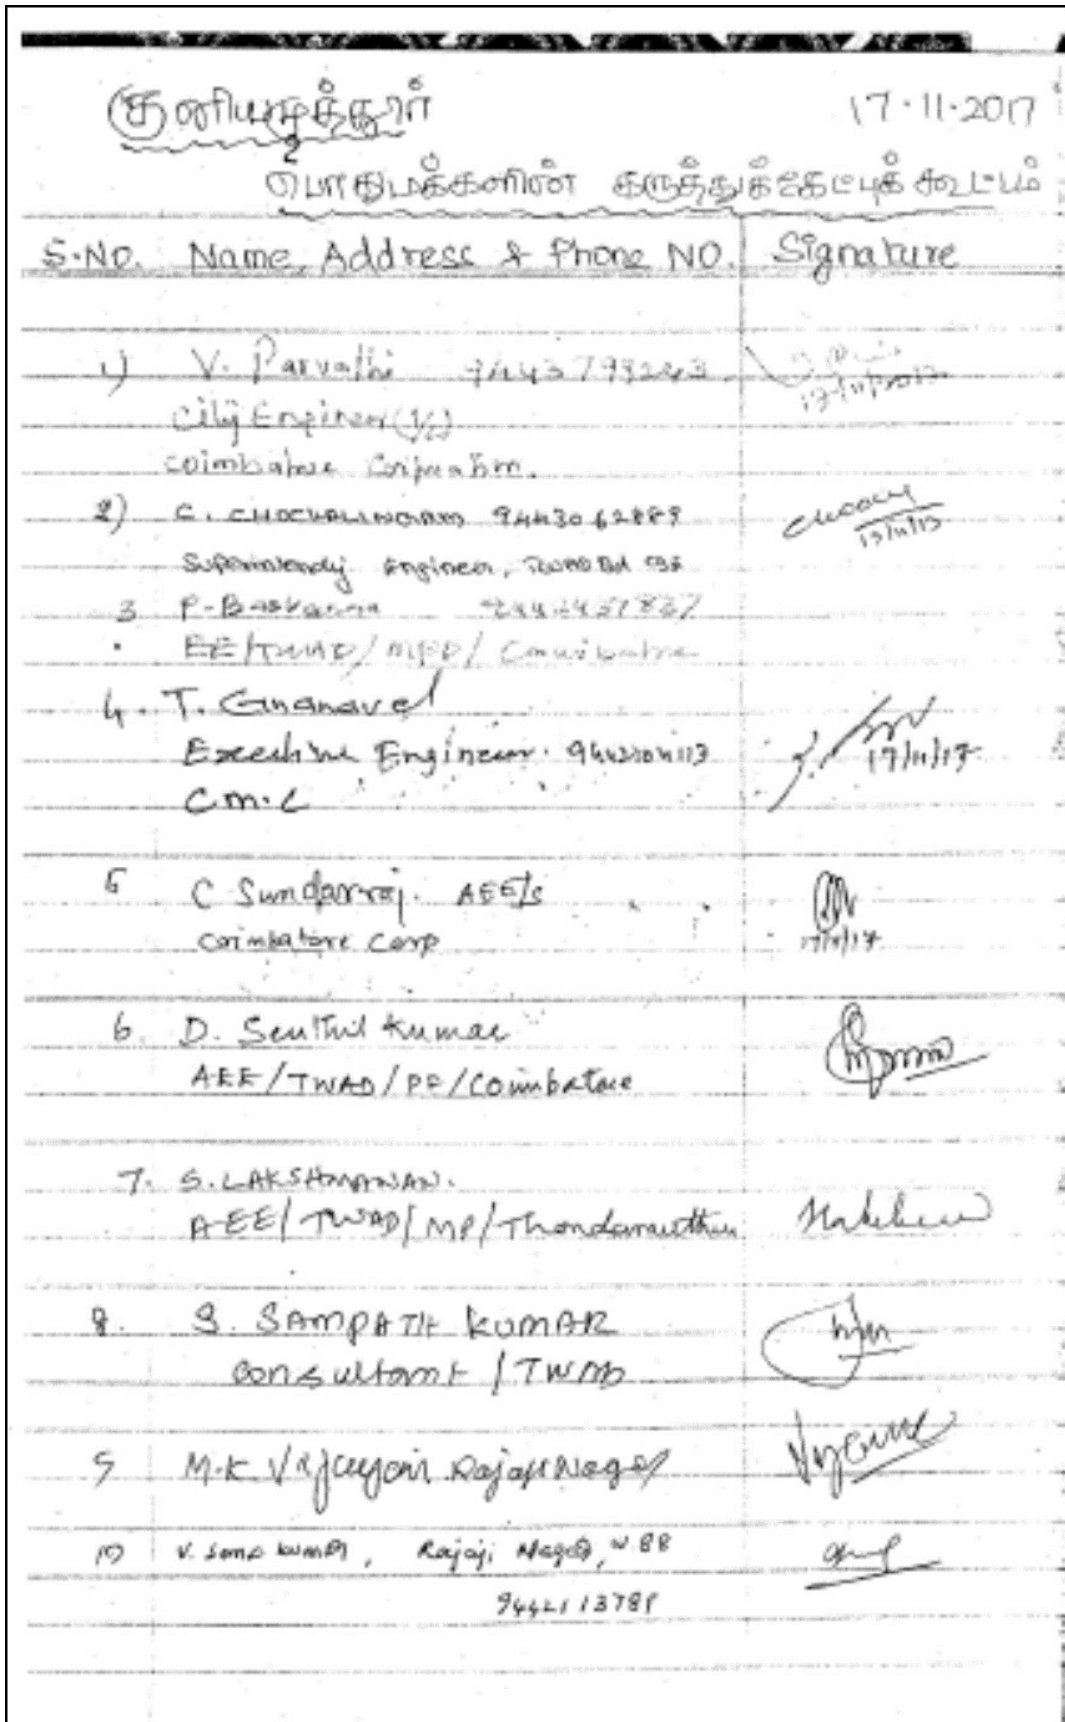 குனியமுத்தூர் 17.11.2017
பொதுமக்களின் கருத்துக்கேட்புக் கூட்டம்
S.NO. Name, Address & Phone NO. Signature
1) V. Parvathi
City Engineer (I/c)
Coimbatore Corporation.
17/11/2017
2) C. CHOCKALINGAM 9443062889
Superintending Engineer, TWAD Bd CBE
3 P. Baskaran
EE/TWAD/MPD/Coimbatore
4. T. Gnanavel
Executive Engineer. 17/11/17
C.M.C
5 C Sundarraj. AEE/s
Coimbatore Corp 17/11/17
6. D. Senthil Kumar
AEE/TWAD/PF/Coimbatore
7. S. LAKSHMANAN.
AEE/TWAD/MP/Thondamuthur
8. S. SAMPATH KUMAR
Consultant / TWAD
9 M.K Vijayan Rajaji Nagar
10) V. Kumar, Rajaji Nagar, W.88
9442113788